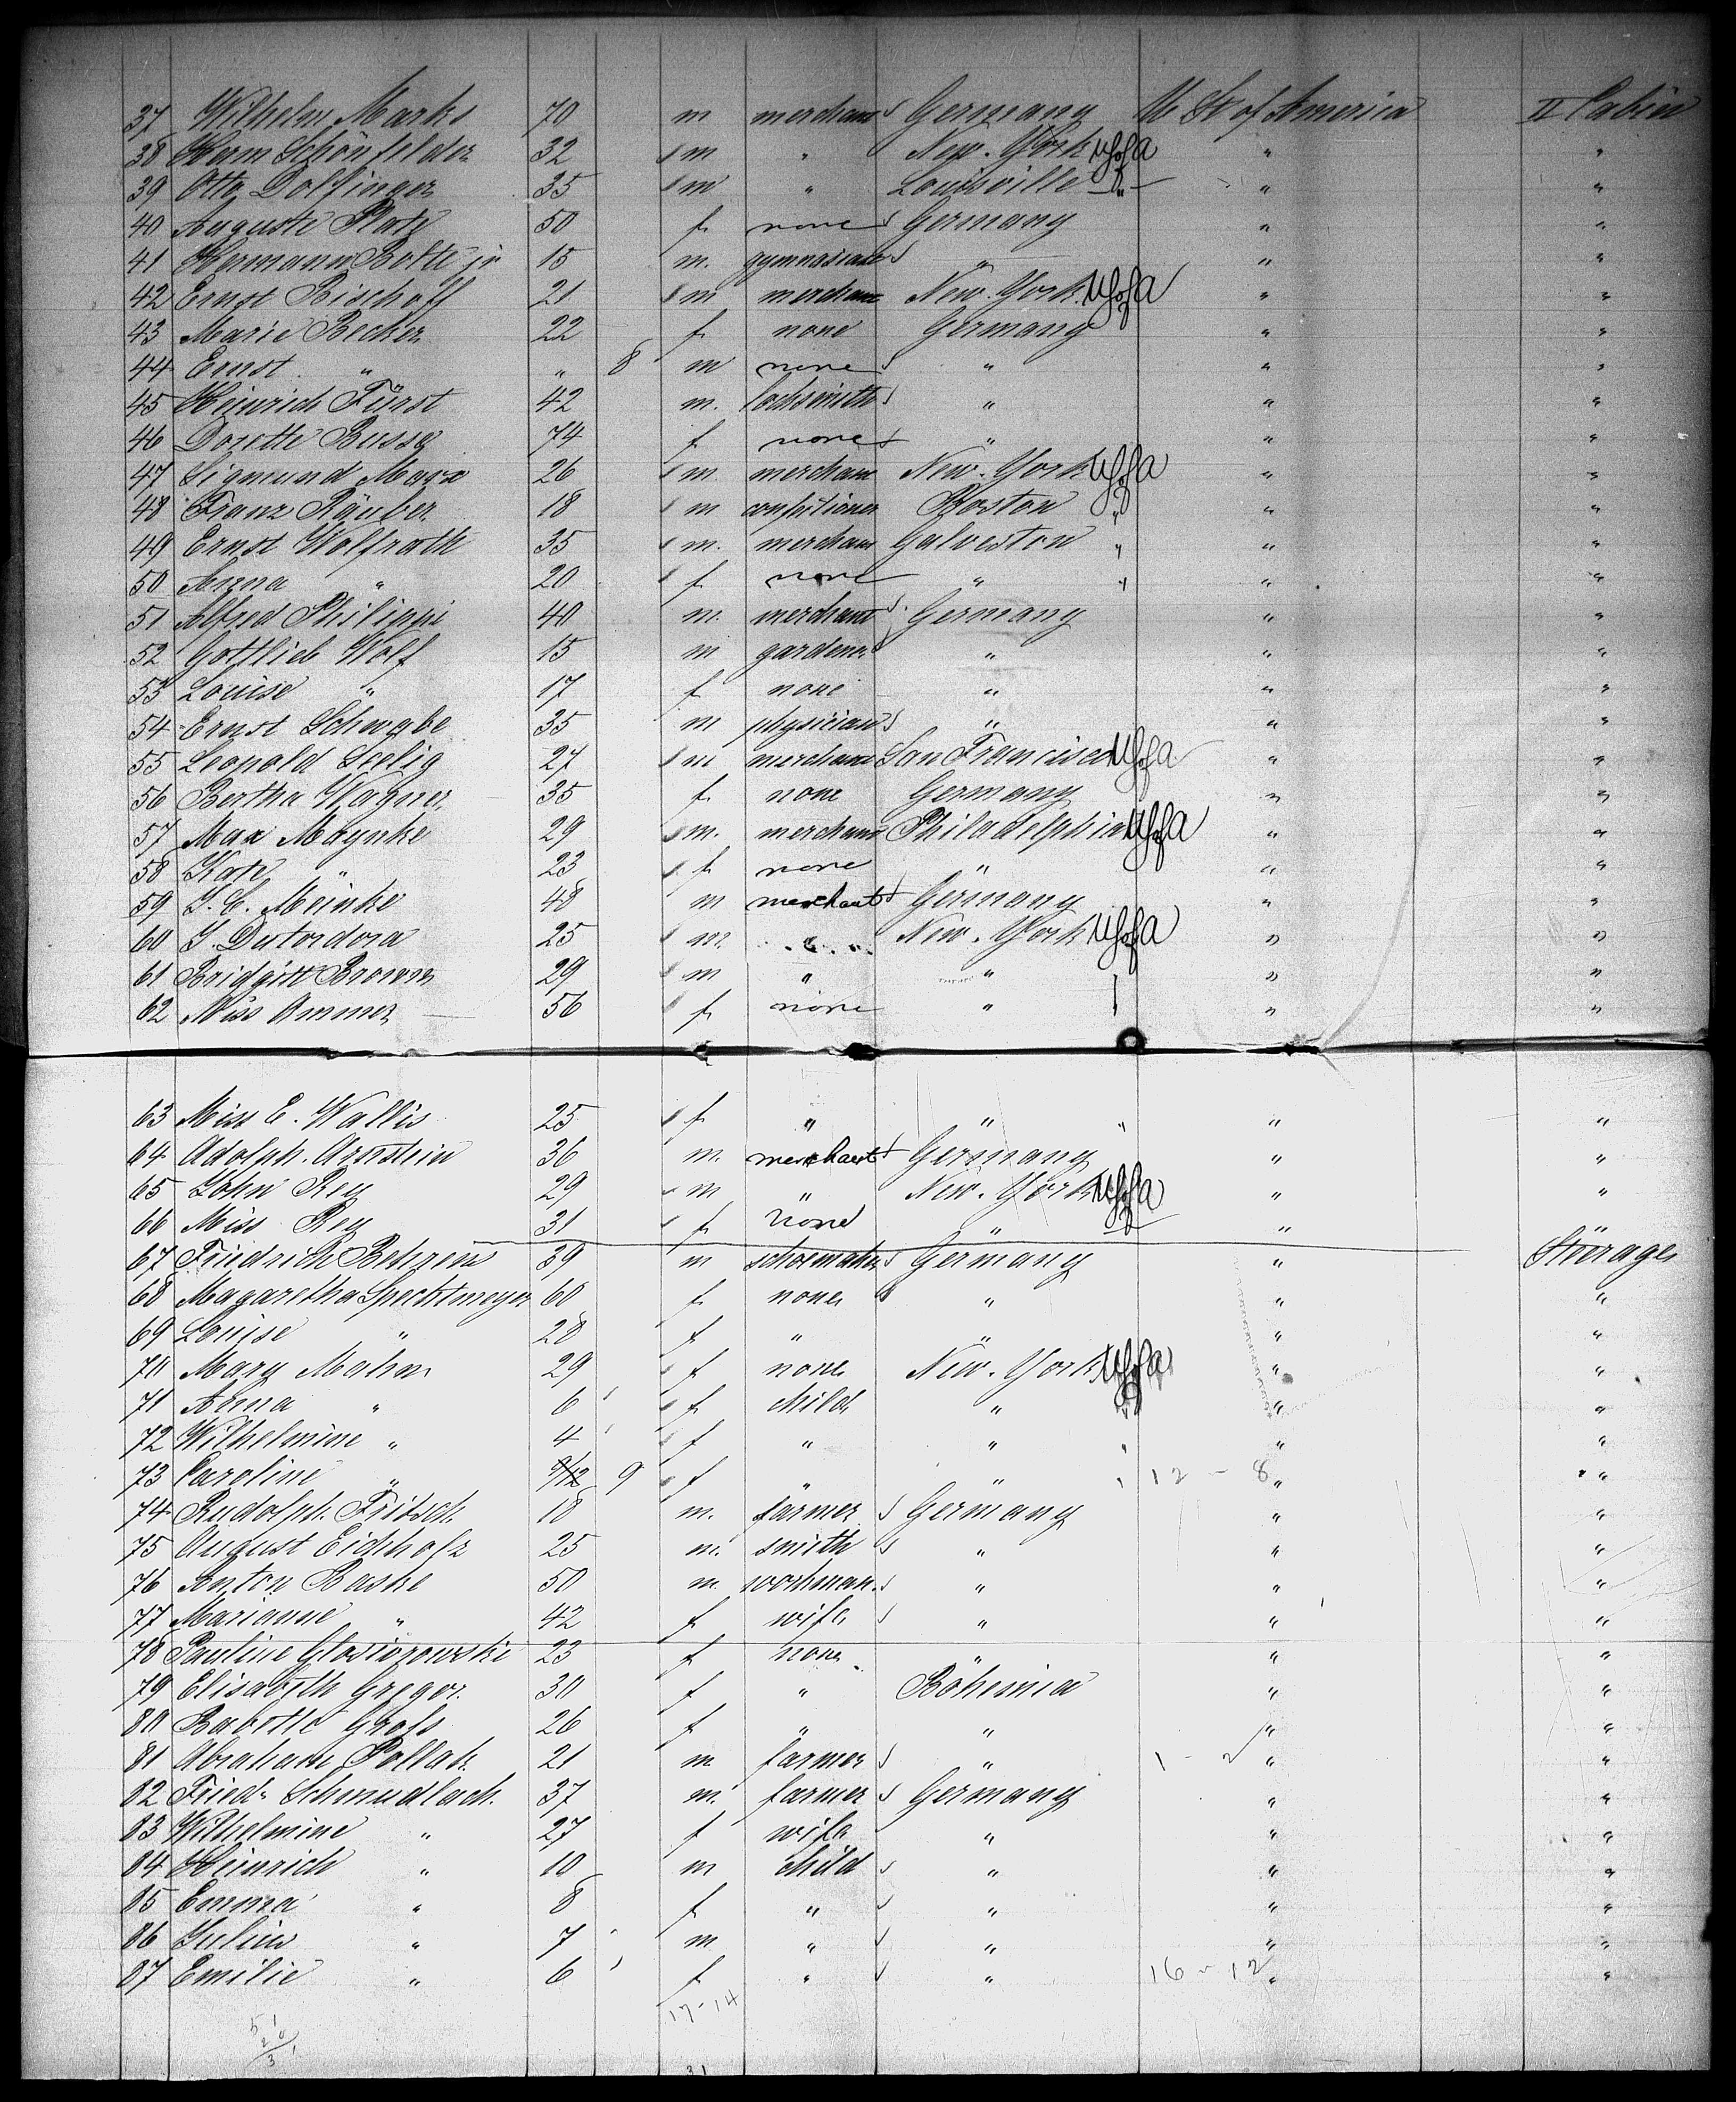 37 Wilhelm Marks 70 m merchant Germany U St of America II Cabin
38 Herm Schönfelder 32 m " New-York UStofA " "
39 Otto Dolfinger 35 m " Louisville " " "
40 Auguste Plate 50 f none Germany " "
41 Hermann Bolte jr 15 m. gymnasiast " " "
42 Ernst Bischoff 21 m merchant New-York UStofA " "
43 Marie Becker 22 f none Germany " "
44 Ernst " " 8 m none " " "
45 Heinrich Fürst 42 m. locksmith " " "
46 Dorette Busse 74 f none " " "
47 Sigmund Marx 26 m. merchant New-York UStofA " "
48 Franz Räuber 18 m confectioner Boston " " "
49 Ernst Wolfrath 35 m. merchant Galveston " " "
50 Anna " 20 f none " " " "
51 Alfred Philippi 40 m. merchant Germany " "
52 Gottlieb Wolf 15 m gardener " " "
53 Louise " 17 f none " " "
54 Ernst Schwabe 35 m physician " " "
55 Leopold Seelig 27 m merchant San Francisco UStofA " "
56 Bertha Wagner 35 f. none Germany " "
57 Max Moynke 29 m. merchant Philadelphia UStofA " "
58 Kate " 23 f none " " "
59 J. C. Meinke 48 m merchant Germany " "
60 J. Dutordora 25 m. " New-York UStofA " "
61 Bridgitt Brown 29 m " " " "
62 Miss Ammer 56 f none " " "
63 Miss E. Wallis 25 f " " " " "
64 Adolph. Arnstein 36 m. merchant Germany " "
65 John Rey 29 m " New-York UStofA " "
66 Miss Rey 31 f none " " " "
67 Friedrich Behrens 39 m shoemaker Germany " Steerage
68 Magaretha Spechtmeyer 60 f none " " "
69 Louise " 28 f " " " "
70 Mary Mahn 29 f none New-York UStofA " "
71 Anna " 6 f child " " " "
72 Wilhelmine " 4 f " " " " "
73 Caroline " 9/12 9 f " " " 12 - 8 " "
74 Rudolph. Fritsch 18 m. farmer Germany " "
75 August Eichholz 25 m. smith " " "
76 Anton Baske 50 m workman " " "
77 Marianne " 42 f wife " " "
78 Pauline 23 f none " "
79 Elisabeth Gregor. 30 f " Böhemia " "
80 Babette Grofs 26 f " " " "
81 Abraham Pollak 21 m farmer " 1 - 2 " "
82 Friedr Schmudlach. 37 m. farmer Germany " "
83 Wilhelmine " 27 f wife " " "
84 Heinrich " 10 m child " " "
85 Emma " 8 f " " " "
86 Julius " 7 m " " " "
87 Emilie " 6 f " " 16 - 12 " "
17-14
51
20
31
31